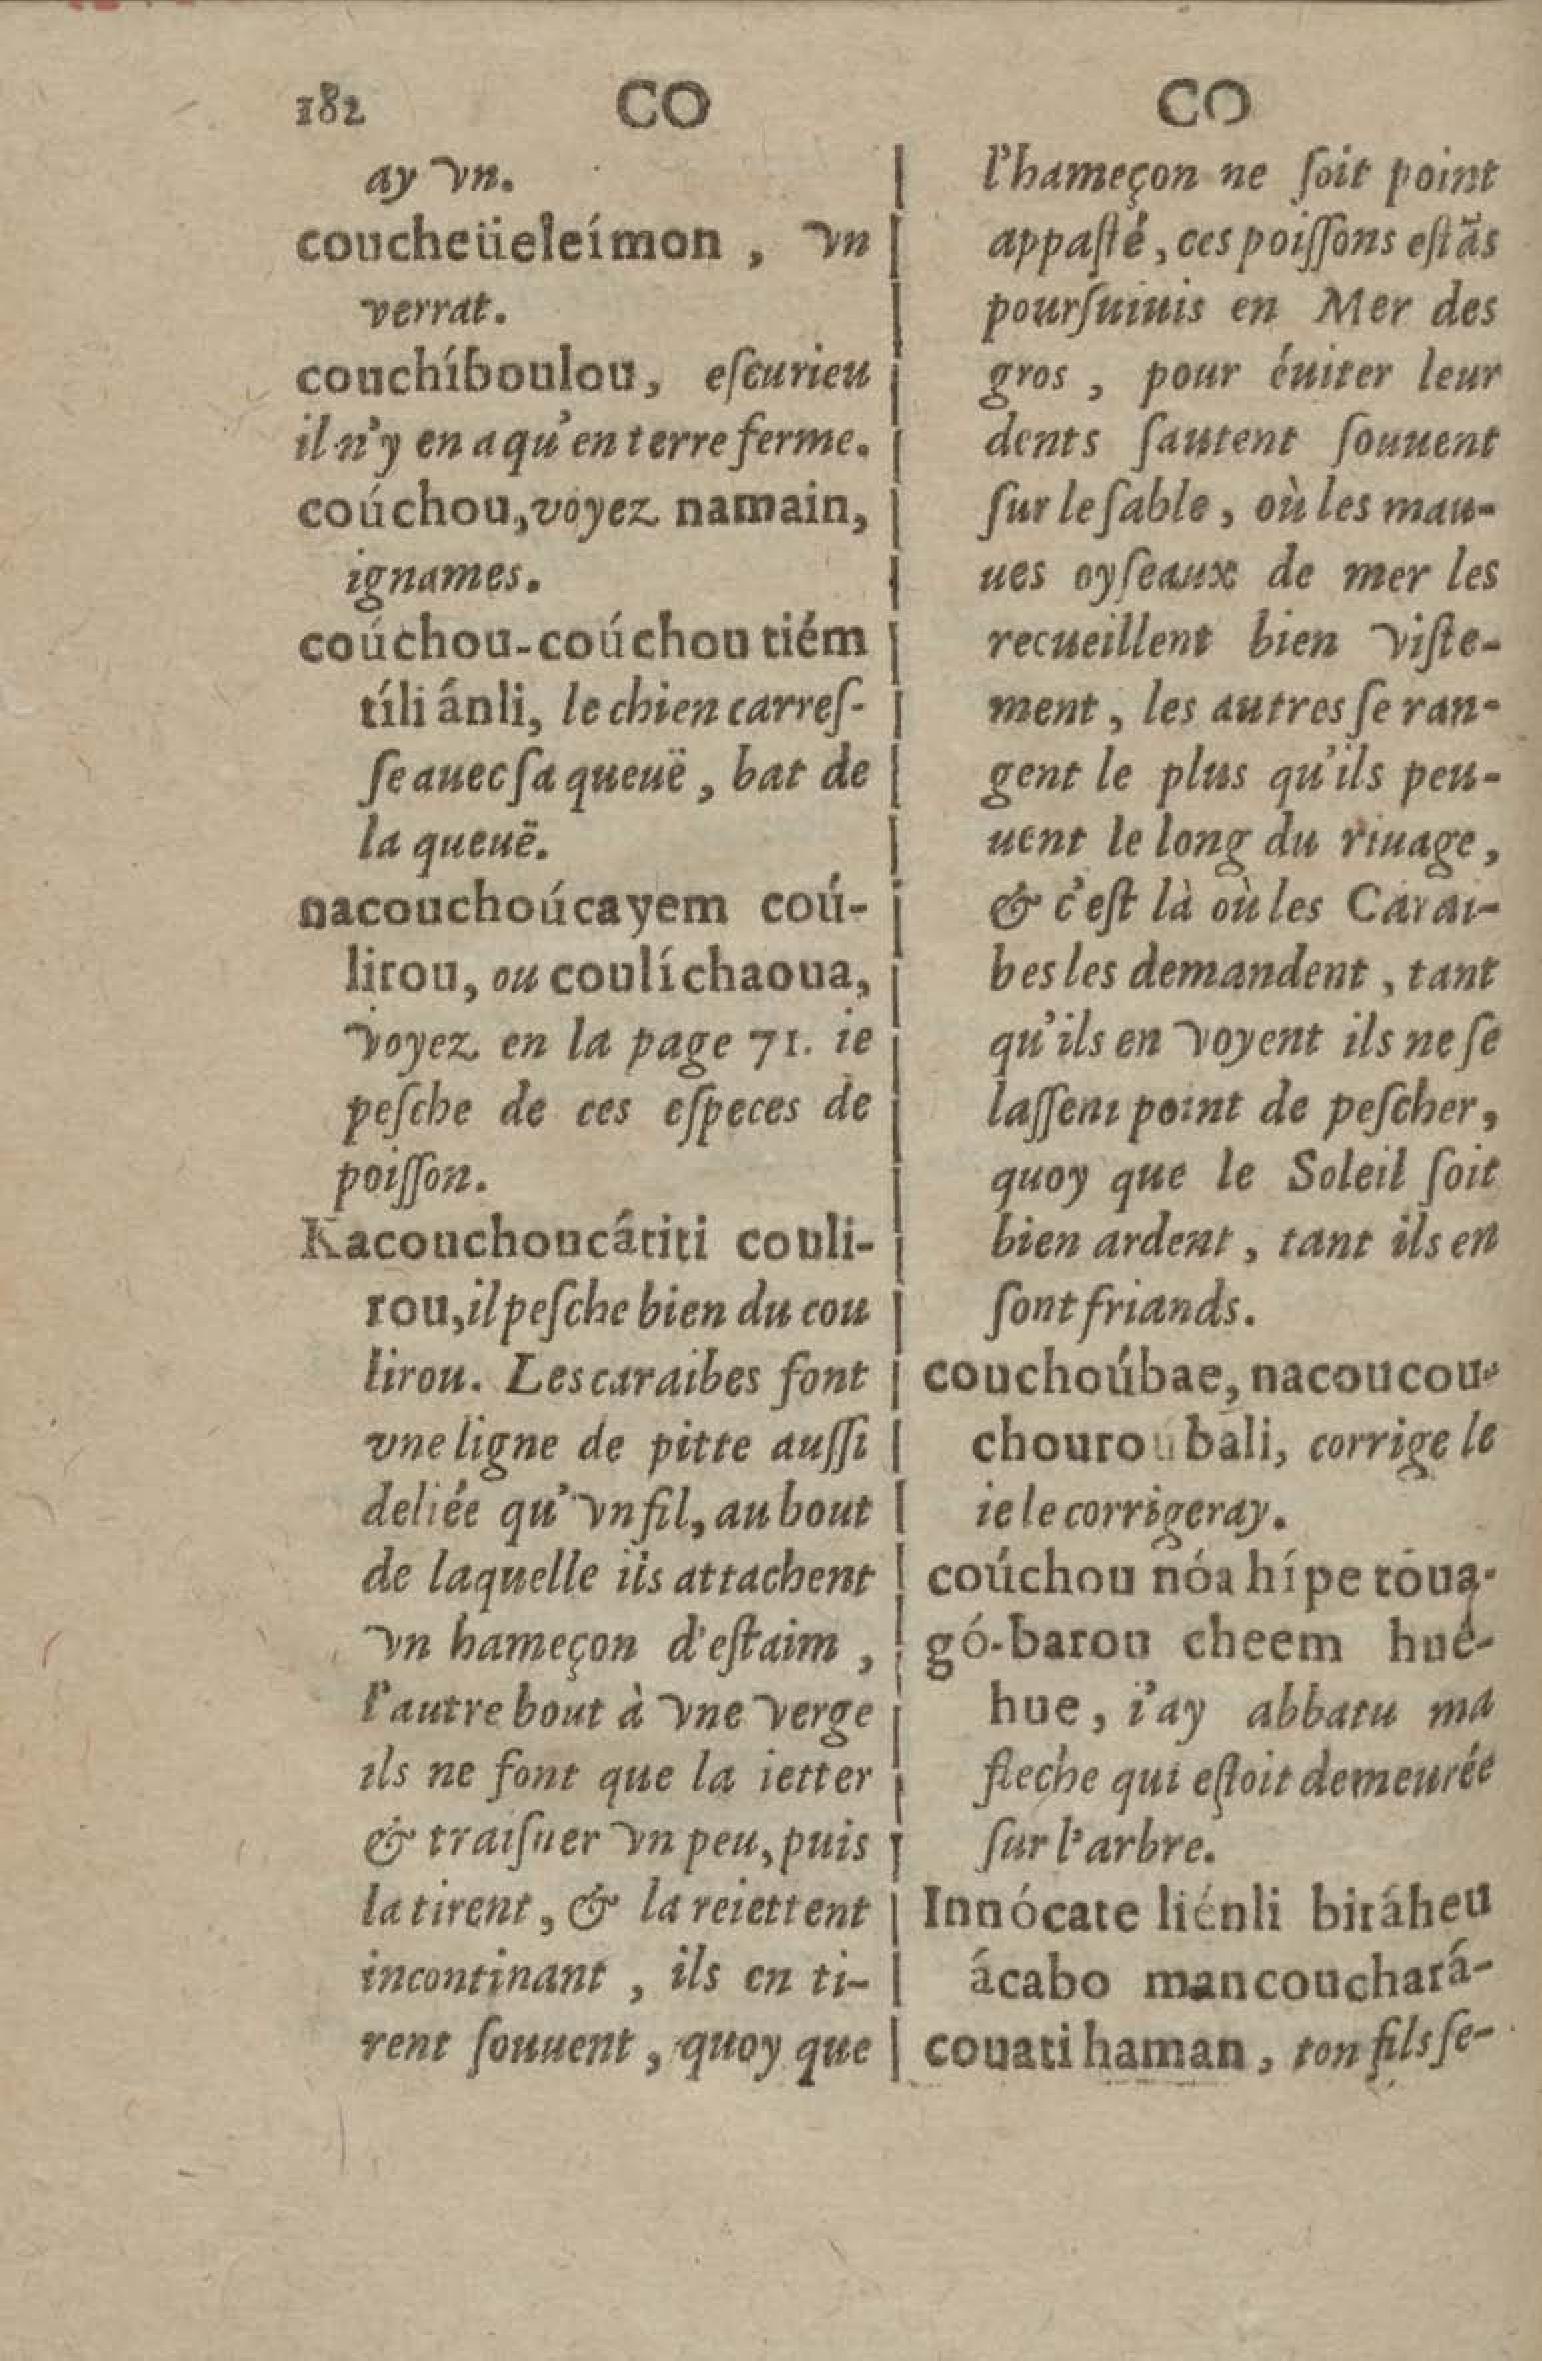 182 CO CO
ay vn.
coucheüeleímon, vn
verrat.
couchíboulou, eſcurieu
il n'y en a qu'en terre ferme.
coúchou, voyez namain,
ignames.
coúchou-coúchou tiém
tíli ânli, le chien carreſ-
ſe auec ſa queuë, bat de
la queuë.
nacouchoúcayem coú-
lirou, ou coulíchaoua,
voyez en la page 71. ie
peſche de ces eſpeces de
poiſſon.
Kacouchoucâtiti couli-
rou, il peſche bien du cou
lirou. Les caraibes font
vne ligne de pitte auſſi
deliée qu'vn fil, au bout
de laquelle ils attachent
vn hameçon d'eſtaim,
l'autre bout à vne verge
ils ne font que la ietter
& traiſner vn peu, puis
la tirent, & la reiettent
incontinant, ils en ti-
rent ſouuent, quoy que
l'hameçon ne ſoit point
appaſté, ces poiſſons eſtãs
pourſuiuis en Mer des
gros, pour éuiter leur
dents ſautent ſouuent
ſur le ſable, où les mau-
ues oyſeaux de mer les
recueillent bien viſte-
ment, les autres ſe ran-
gent le plus qu'ils peu-
uent le long du riuage,
& c'eſt là où les Carai-
bes les demandent, tant
qu'ils en voyent ils ne ſe
laſſent point de peſcher,
quoy que le Soleil ſoit
bien ardent, tant ils en
ſont friands.
couchoúbae, nacoucou-
chouroubali, corrige le
ie le corrigeray.
coúchou nóa hípe tóua-
gó-barou cheem hué-
hue, i'ay abbatu ma
fleche qui eſtoit demeurée
ſur l'arbre.
Innócate liénli biráheu
ácabo mancouchará-
couati haman, ton fils ſe-